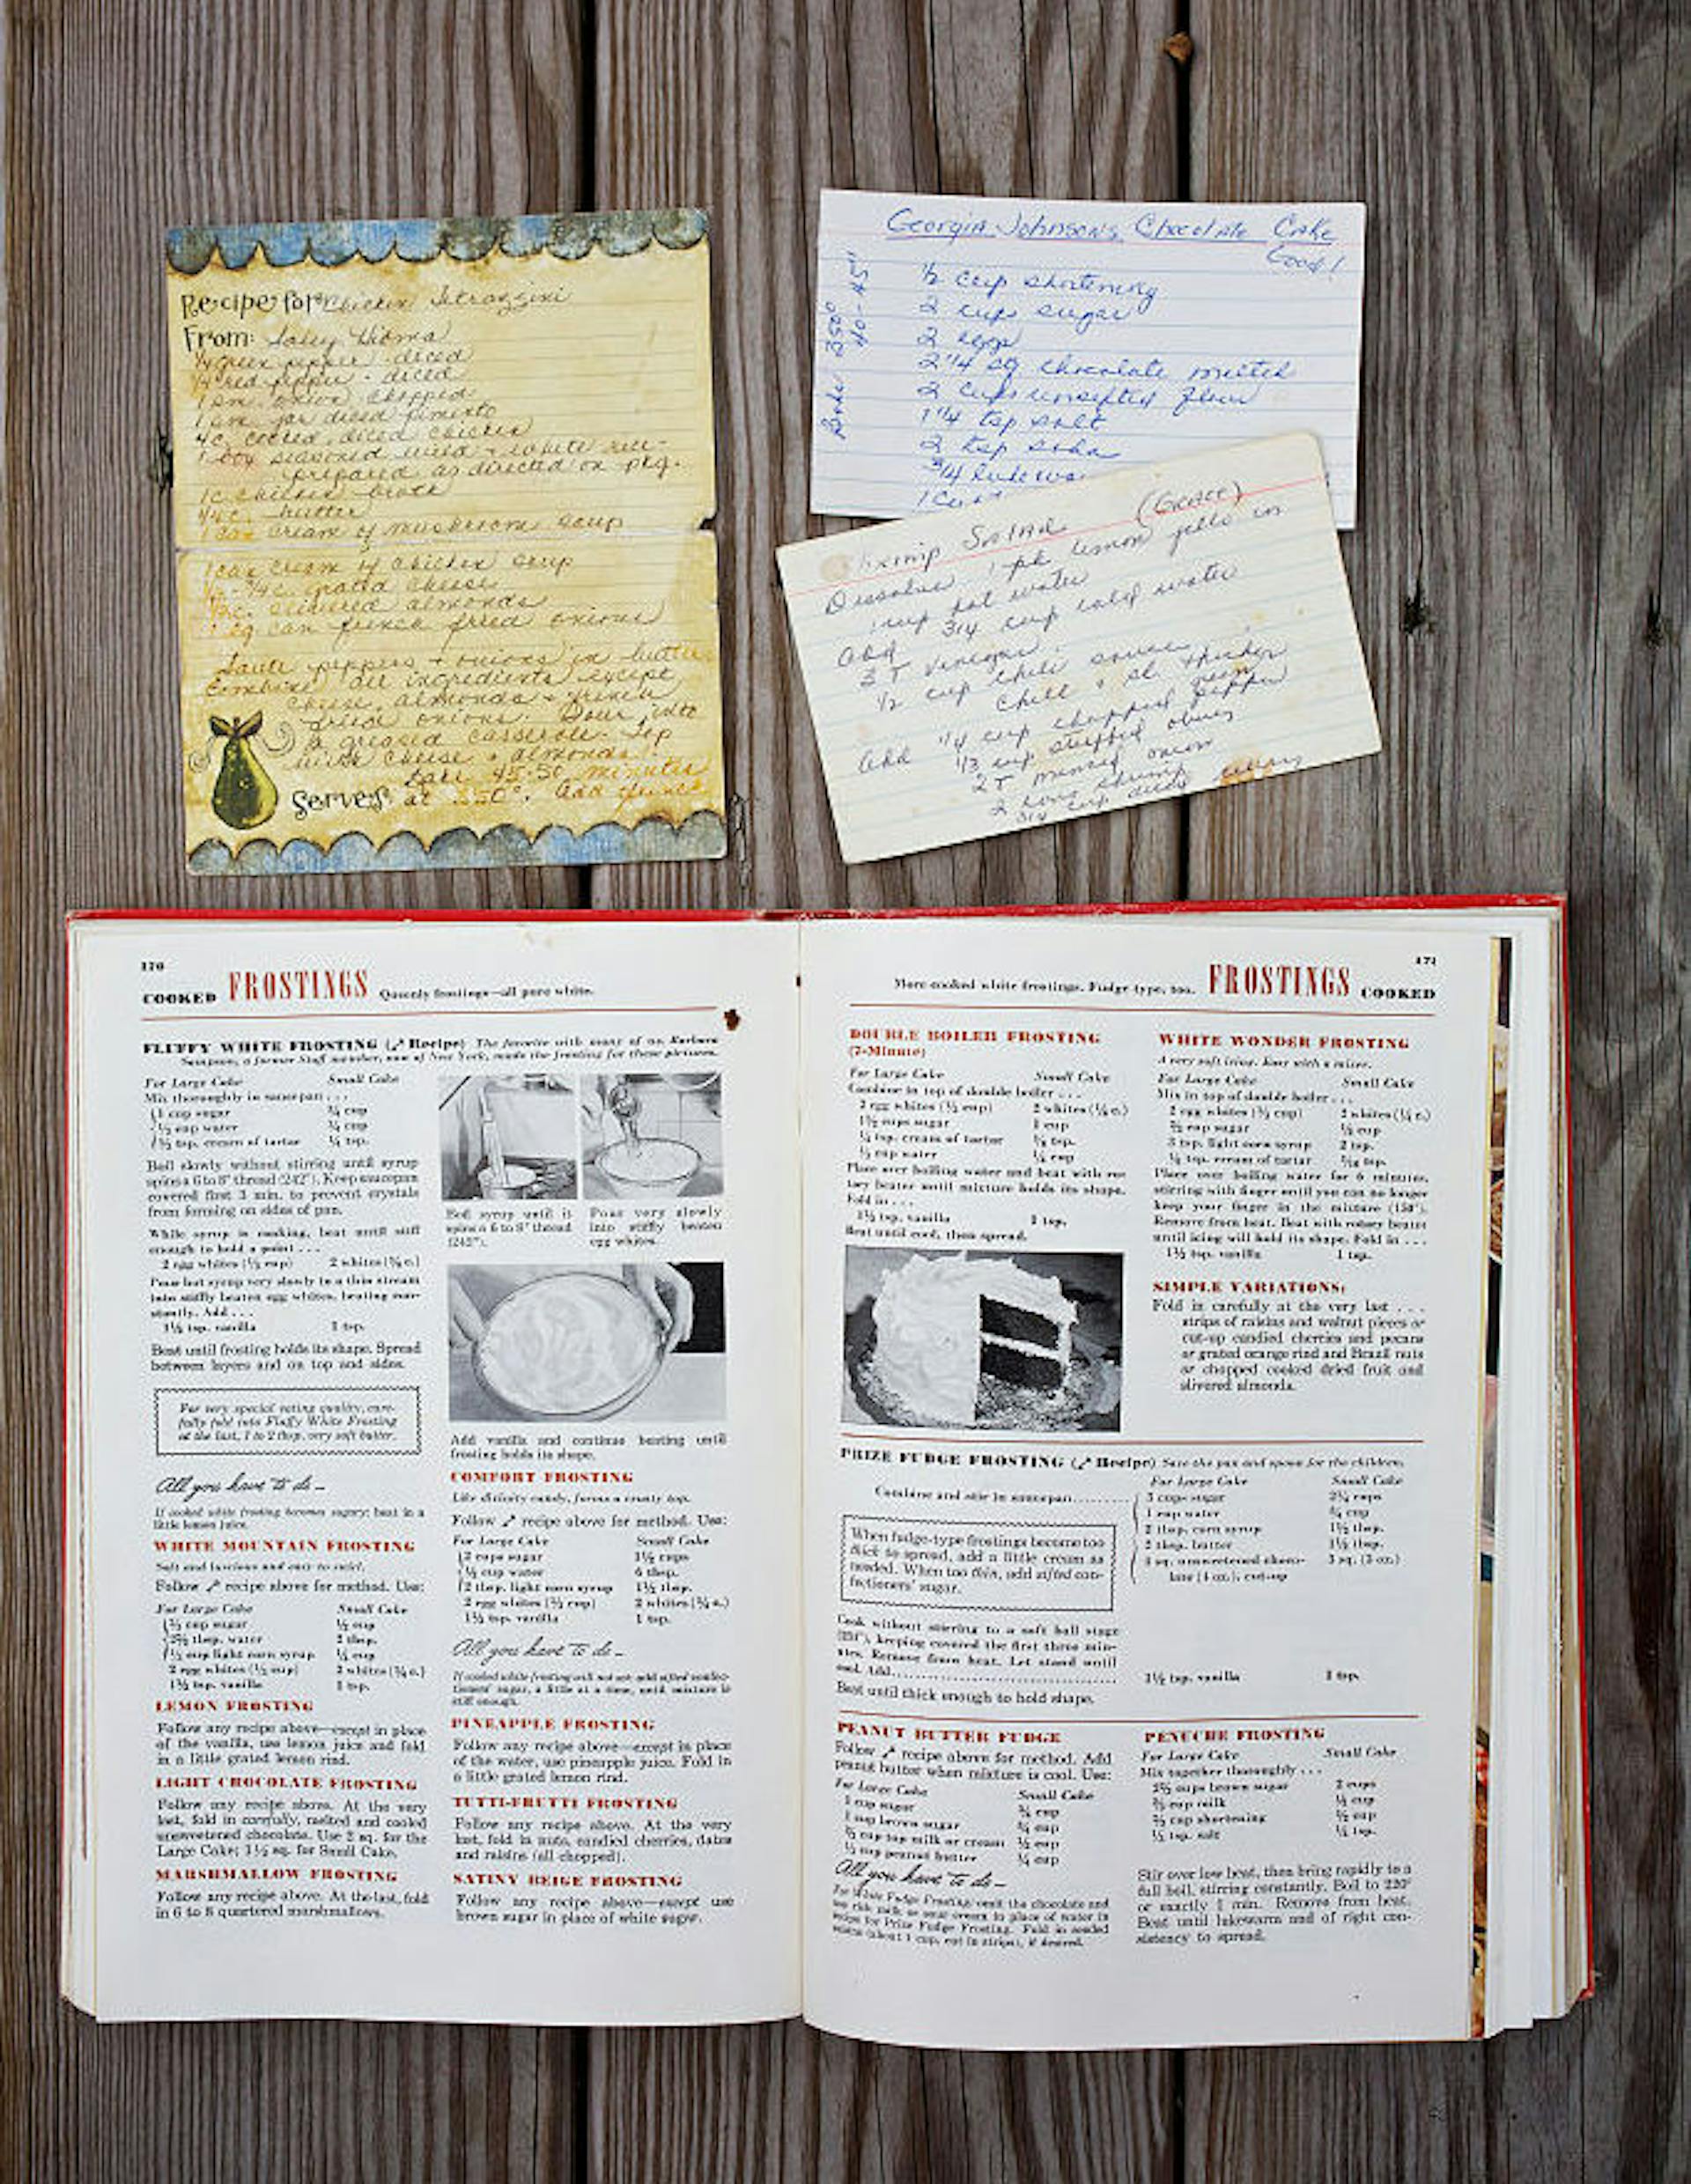 Recipe for Chicken Tetrazzini
From:
1/4 green pepper - diced
1/4 red pepper - diced
1 sm. onion chopped
1 sm jar diced pimiento
4c. cooked, diced chicken
1 box seasoned wild + white rice -
prepared as directed on pkg.
1c chicken broth
1/4 c. butter
1 can cream of mushroom soup
1 can cream of chicken soup
grated cheese
slivered almonds
1 lg can french fried onions
Saute peppers + onions in butter
Combine all ingredients except
cheese, almonds + french
fried onions. Pour into
a greased casserole. Top
with cheese + almonds.
Bake 45-50 minutes
Serves at 350°. Add french
Georgia Johnson's Chocolate Cake
Good!
Bake 350°
40-45"
1/2 cup shortening
2 cups sugar
2 eggs
2 1/4 sq chocolate melted
2 cups unsifted flour
1 1/4 tsp salt
2 tsp soda
3/4 lukewa
1 Cu
Shrimp Salad (Grace)
Dissolve 1 pk lemon jello in
1 cup hot water
3/4 cup cold water
Add
3 T vinegar
1/2 cup chili sauce
Chill + sl. thicken
Add 1/4 cup chopped green pepper
1/3 cup stuffed olives
2 T minced onion
2 cans shrimp
3/4 cup diced celery
170
COOKED FROSTINGS Queenly frostings—all pure white.
FLUFFY WHITE FROSTING ( Recipe) The favorite with many of us. Barbara
Sampson, a former Staff member, now of New York, made the frosting for these pictures.
For Large Cake Small Cake
Mix thoroughly in saucepan . . .
1 cup sugar ¾ cup
⅓ cup water ¼ cup
⅓ tsp. cream of tartar ¼ tsp.
Boil slowly without stirring until syrup
spins a 6 to 8" thread (242°). Keep saucepan
covered first 3 min. to prevent crystals
from forming on sides of pan.
While syrup is cooking, beat until stiff
enough to hold a point . . .
2 egg whites (⅓ cup) 2 whites (¼ c.)
Pour hot syrup very slowly in a thin stream
into stiffly beaten egg whites, beating con-
stantly. Add . . .
1½ tsp. vanilla 1 tsp.
Beat until frosting holds its shape. Spread
between layers and on top and sides.
For very special eating quality, care-
fully fold into Fluffy White Frosting
at the last, 1 to 2 tbsp. very soft butter.
All you have to do—
If cooked white frosting becomes sugary: beat in a
little lemon juice.
WHITE MOUNTAIN FROSTING
Soft and luscious and easy to swirl.
Follow recipe above for method. Use:
For Large Cake Small Cake
⅔ cup sugar ½ cup
2⅔ tbsp. water 2 tbsp.
⅓ cup light corn syrup ¼ cup
2 egg whites (⅓ cup) 2 whites (¼ c.)
1½ tsp. vanilla 1 tsp.
LEMON FROSTING
Follow any recipe above—except in place
of the vanilla, use lemon juice and fold
in a little grated lemon rind.
LIGHT CHOCOLATE FROSTING
Follow any recipe above. At the very
last, fold in carefully, melted and cooled
unsweetened chocolate. Use 2 sq. for the
Large Cake; 1½ sq. for Small Cake.
MARSHMALLOW FROSTING
Follow any recipe above. At the last, fold
in 6 to 8 quartered marshmallows.
Boil syrup until it
spins a 6 to 8" thread
(242°).
Pour very slowly
into stiffly beaten
egg whites.
Add vanilla and continue beating until
frosting holds its shape.
COMFORT FROSTING
Like divinity candy, forms a crusty top.
Follow recipe above for method. Use:
For Large Cake Small Cake
2 cups sugar 1½ cups
½ cup water 6 tbsp.
2 tbsp. light corn syrup 1½ tbsp.
2 egg whites (⅓ cup) 2 whites (¼ c.)
1½ tsp. vanilla 1 tsp.
All you have to do—
If cooked white frosting will not set: add sifted confec-
tioners' sugar, a little at a time, until mixture is
stiff enough.
PINEAPPLE FROSTING
Follow any recipe above—except in place
of the water, use pineapple juice. Fold in
a little grated lemon rind.
TUTTI-FRUTTI FROSTING
Follow any recipe above. At the very
last, fold in nuts, candied cherries, dates
and raisins (all chopped).
SATINY BEIGE FROSTING
Follow any recipe above—except use
brown sugar in place of white sugar.
171
More cooked white frostings. Fudge-type, too. FROSTINGS COOKED
DOUBLE BOILER FROSTING
(7-Minute)
For Large Cake Small Cake
Combine in top of double boiler . . .
2 egg whites (⅓ cup) 2 whites (¼ c.)
1½ cups sugar 1 cup
¼ tsp. cream of tartar ⅛ tsp.
⅓ cup water ¼ cup
Place over boiling water and beat with ro-
tary beater until mixture holds its shape.
Fold in . . .
1½ tsp. vanilla 1 tsp.
Beat until cool, then spread.
WHITE WONDER FROSTING
A very soft icing. Easy with a mixer.
For Large Cake Small Cake
Mix in top of double boiler . . .
2 egg whites (⅓ cup) 2 whites (¼ c.)
⅔ cup sugar ½ cup
3 tsp. light corn syrup 2 tsp.
tsp. cream of tartar
Place over boiling water for 6 minutes,
stirring with finger until you can no longer
keep your finger in the mixture (150°).
Remove from heat. Beat with rotary beater
until icing will hold its shape. Fold in . . .
1½ tsp. vanilla 1 tsp.
SIMPLE VARIATIONS:
Fold in carefully at the very last . . .
strips of raisins and walnut pieces or
cut-up candied cherries and pecans
or grated orange rind and Brazil nuts
or chopped cooked dried fruit and
slivered almonds.
PRIZE FUDGE FROSTING ( Recipe) Save the pan and spoon for the children.
For Large Cake Small Cake
Combine and stir in saucepan..........
3 cups sugar 2¼ cups
1 cup water ¾ cup
2 tbsp. corn syrup 1½ tbsp.
2 tbsp. butter 1½ tbsp.
4 sq. unsweetened choco- 3 sq. (3 oz.)
late (4 oz.), cut-up
When fudge-type frostings become too
thick to spread, add a little cream as
needed. When too thin, add sifted con-
fectioners' sugar.
Cook without stirring to a soft ball stage
keeping covered the first three min-
utes. Remove from heat. Let stand until
cool. Add....................
1½ tsp. vanilla 1 tsp.
Beat until thick enough to hold shape.
PEANUT BUTTER FUDGE
Follow recipe above for method. Add
peanut butter when mixture is cool. Use:
For Large Cake Small Cake
1 cup sugar ¾ cup
1 cup brown sugar ¾ cup
⅔ cup top milk or cream ½ cup
⅓ cup peanut butter ¼ cup
All you have to do—
For White Fudge Frosting: omit the chocolate and
use rich milk or sour cream in place of water in
recipe for Prize Fudge Frosting. Fold in seeded
raisins (about 1 cup, cut in strips), if desired.
PENUCHE FROSTING
For Large Cake Small Cake
Mix together thoroughly . . .
2⅔ cups brown sugar 2 cups
⅔ cup milk ½ cup
⅔ cup shortening ½ cup
tsp. salt
Stir over low heat, then bring rapidly to a
full boil, stirring constantly. Boil to 220°
or exactly 1 min. Remove from heat.
Beat until lukewarm and of right con-
sistency to spread.